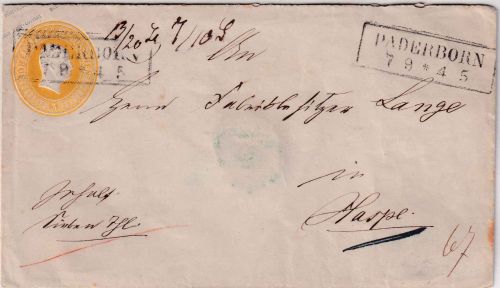 13/20 7/10
An
PADERBORN
7 9 * 4 5
PADERBORN
7 9 * 4 5
Herrn Fabrikbesitzer Lange
in
Haspe.
Inhalt
Sieben Thl.
67